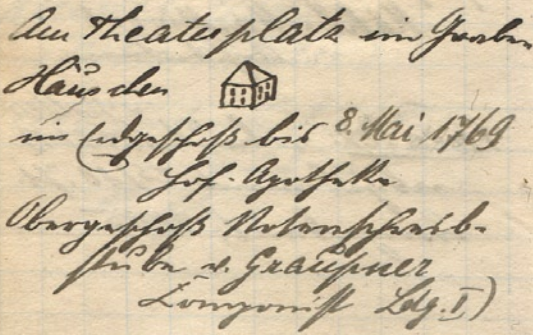 Am Theaterplatz im Graben
Häuschen
im Erdgeschoß bis 8. Mai 1769
Hof-Apotheke
Obergeschoß Notenschreib-
stube v. Graupner
Komponist Ldg. I)